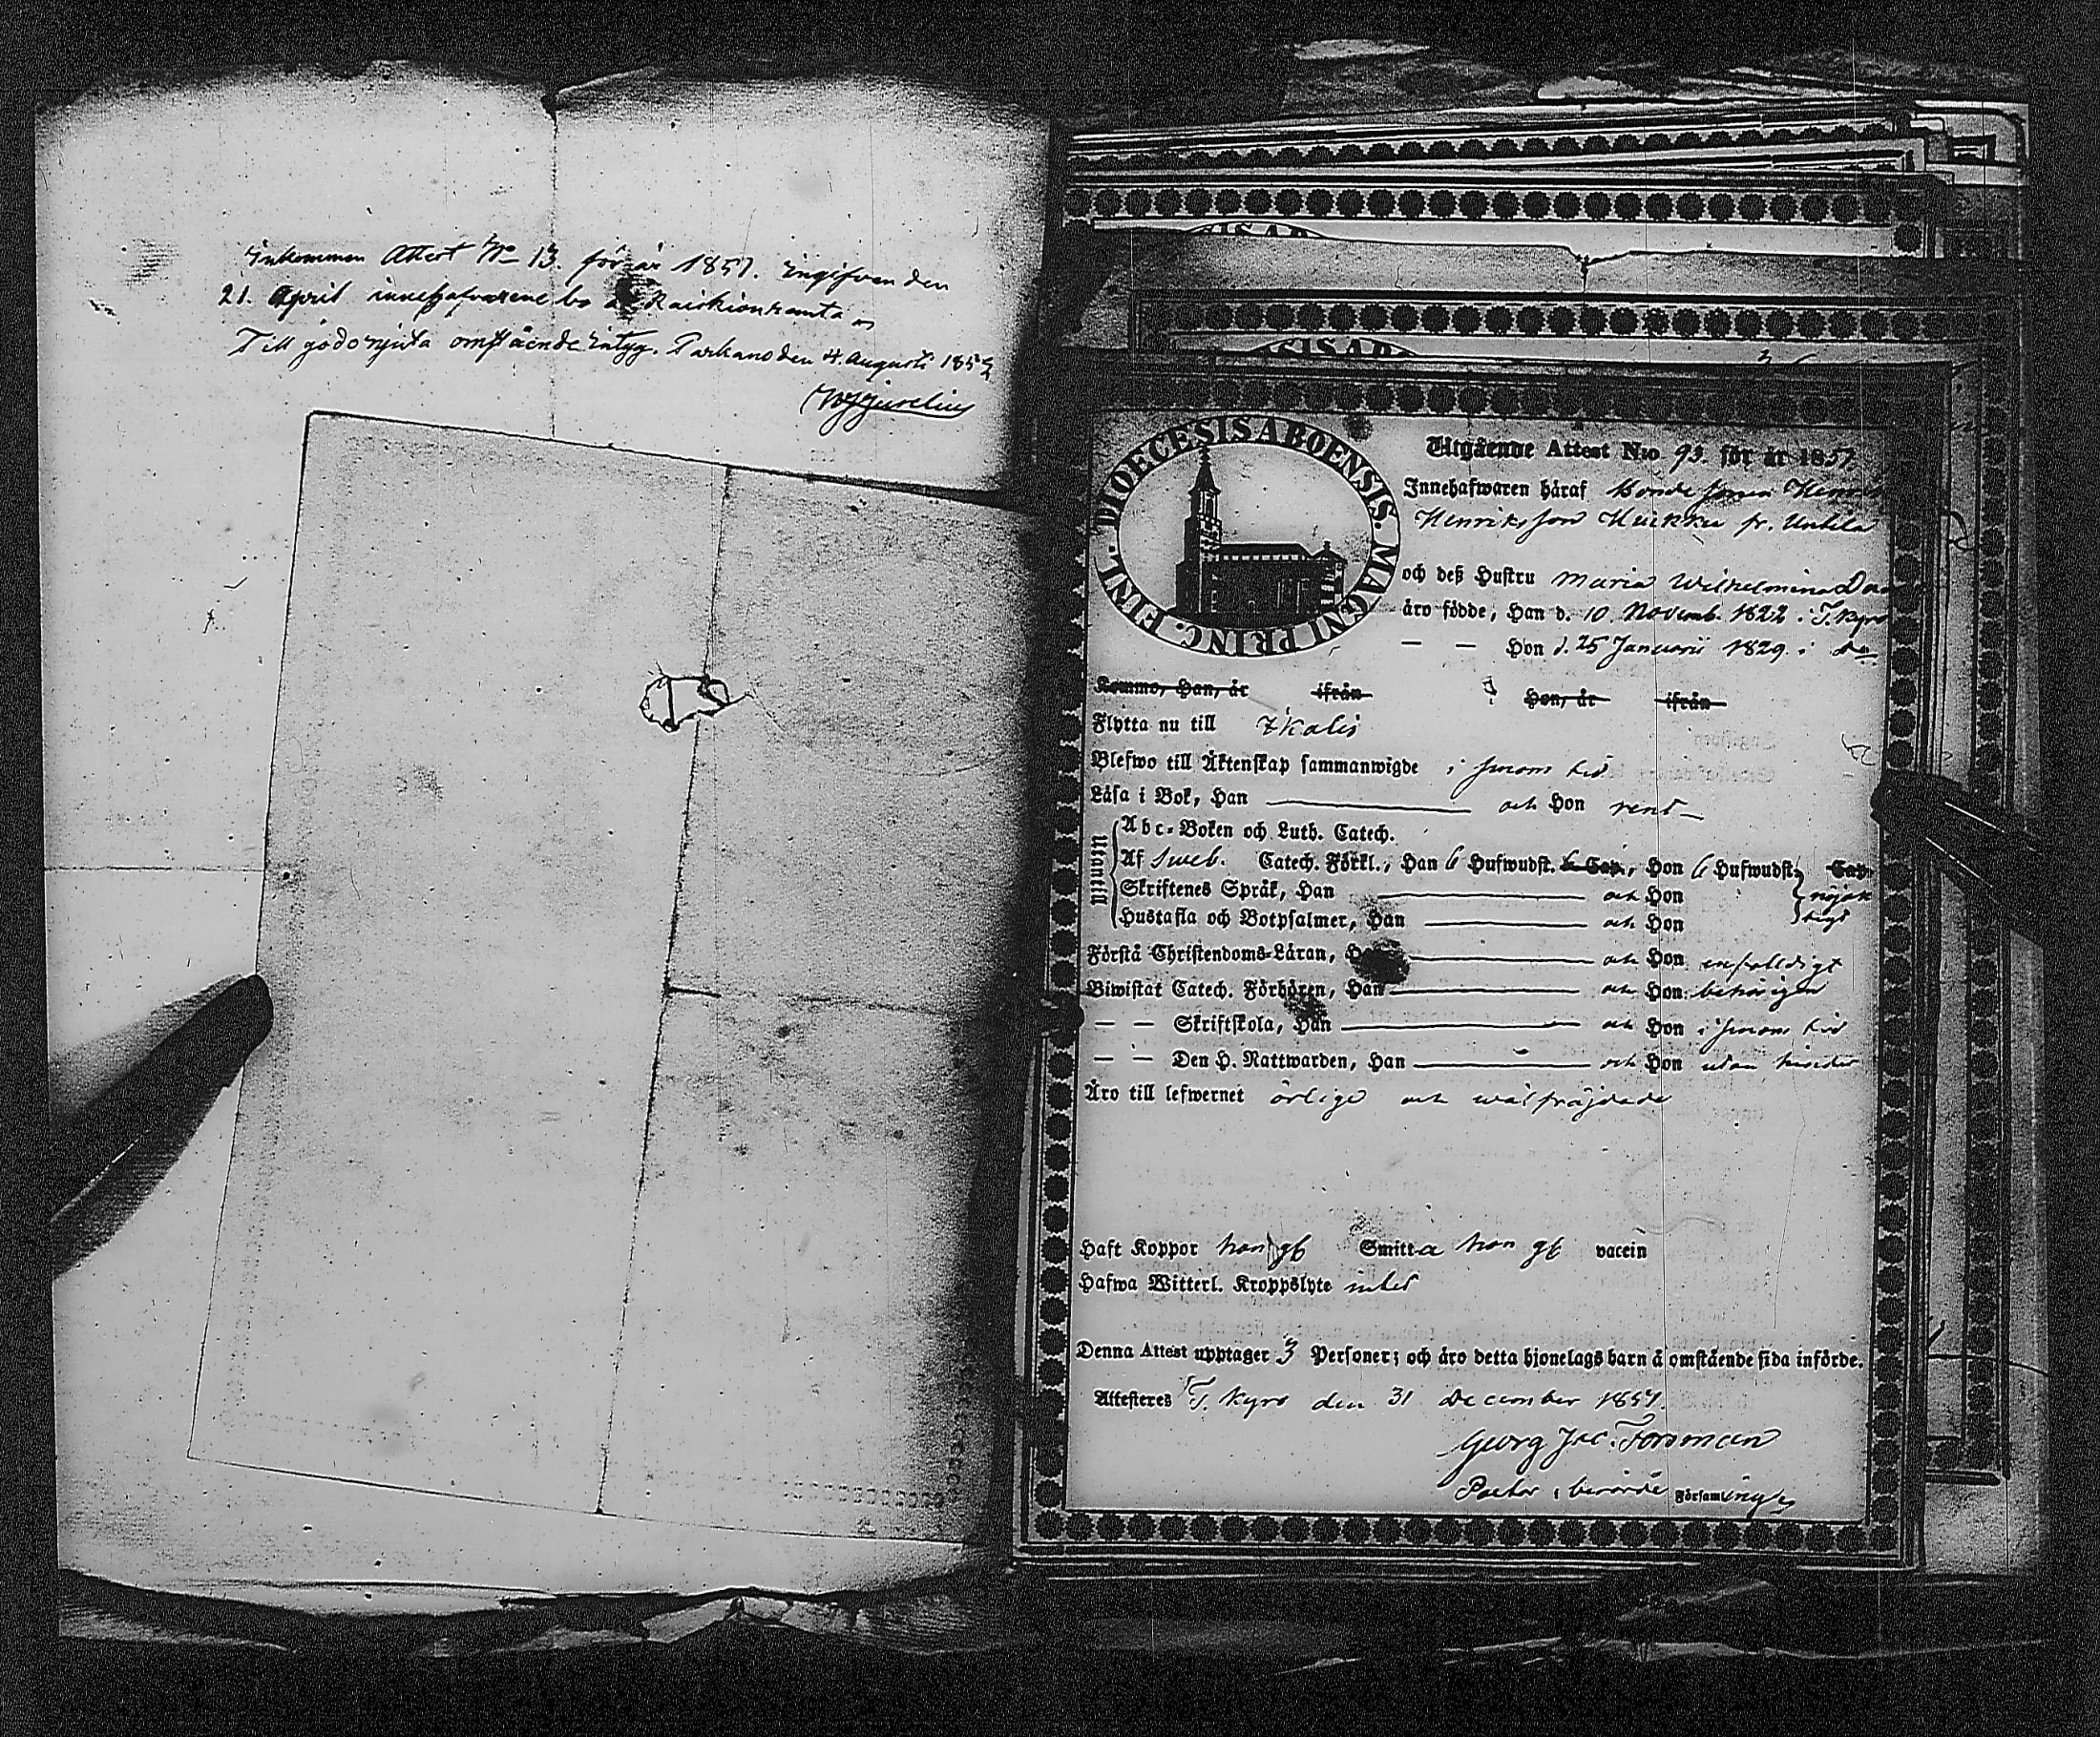 Inkommen Attest No 13. för år 1857. Ingifven den
21. April innehafvarene bo å Raiskionkanta
Till godo njuta omstående intyg. Parkano den 4. Augusti 185
DIOECESIS ABOENSIS. MAGNI PRINC. FINL.
Utgående Attest N:o 93. för år 1857.
Innehafwaren häraf Bonde sonen Henrik
Henriksson Kuikka fr. Untila
och deß Hustru Maria Wilhelmina
äro födde, Han d. 10 Novemb. 1822 i T. Kyro
— — Hon d. 25 Januarii 1829. i do
Kommo, Han, år ifrån Hon, år ifrån
Flytta nu till Ikalis
Blefwo till Äktenskap sammanwigde i sinom tid
Läsa i Bok, Han — och Hon rent
Utantill
Abc-Boken och Luth. Catech.
Af Sveb. Catech. Förkl., Han 6 Hufwudst. 6 Cap., Hon 6 Hufwudst. Cap.
Skriftenes Språk, Han — och Hon nöjak
Hustafla och Botpsalmer, Han — och Hon tigt
Förstå Christendoms-Läran, Han — och Hon enfalldigt
Biwistat Catech. Förhören, Han — och Hon behörigen
— — Skriftskola, Han — och Hon i sinom tid
— — Den H. Nattwarden, Han — och Hon utan hinder
Äro till lefwernet ärlige och wälfräjdade
Haft Koppor Smitta vaccin
Hafwa Witterl. Kroppslyte intet
Denna Attest upptager 3 Personer; och äro detta hjonelags barn å omstående sida införde.
Attesteres T. Kyro den 31 December 1857.
Georg Jac. Forsman
Pastor i berörde Församlings